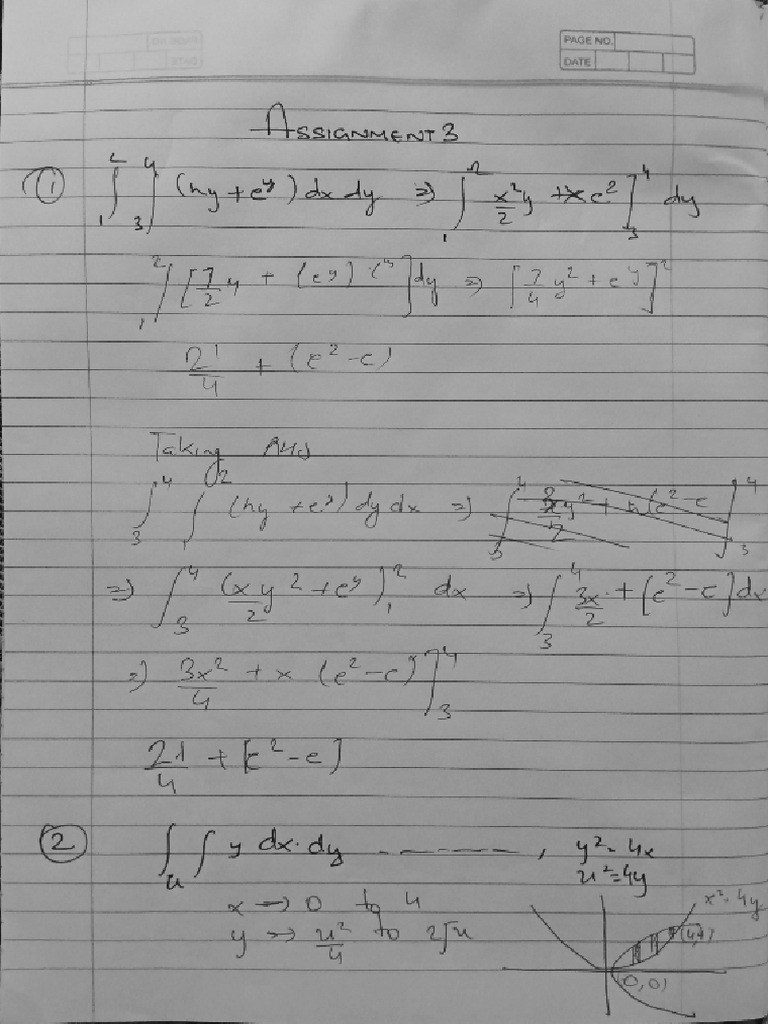 PAGE NO.
DATE
ASSIGNMENT 3
① ∫₁² ∫₃⁴ (xy + e^y) dx dy ⇒ ∫₁² x²y/2 + x e² ]₃⁴ dy
∫₁² [7/2 y + (e^y) ] dy ⇒ [7/4 y² + e^y]²
21/4 + (e² - e)
Taking
∫₃⁴ ∫₁² (xy + e^y) dy dx ⇒
⇒ ∫₃⁴ (xy²/2 + e^y)₁² dx ⇒ ∫₃⁴ 3x/2 + [e² - e] dx
⇒ 3x²/4 + x (e² - e) ]₃⁴
21/4 + [e² - e]
② ∫ᵣ ∫ y dx·dy -------, y² = 4x
x² = 4y
x → 0 to 4
y → x²/4 to 2√x
x² = 4y
(4,4)
(0,0)